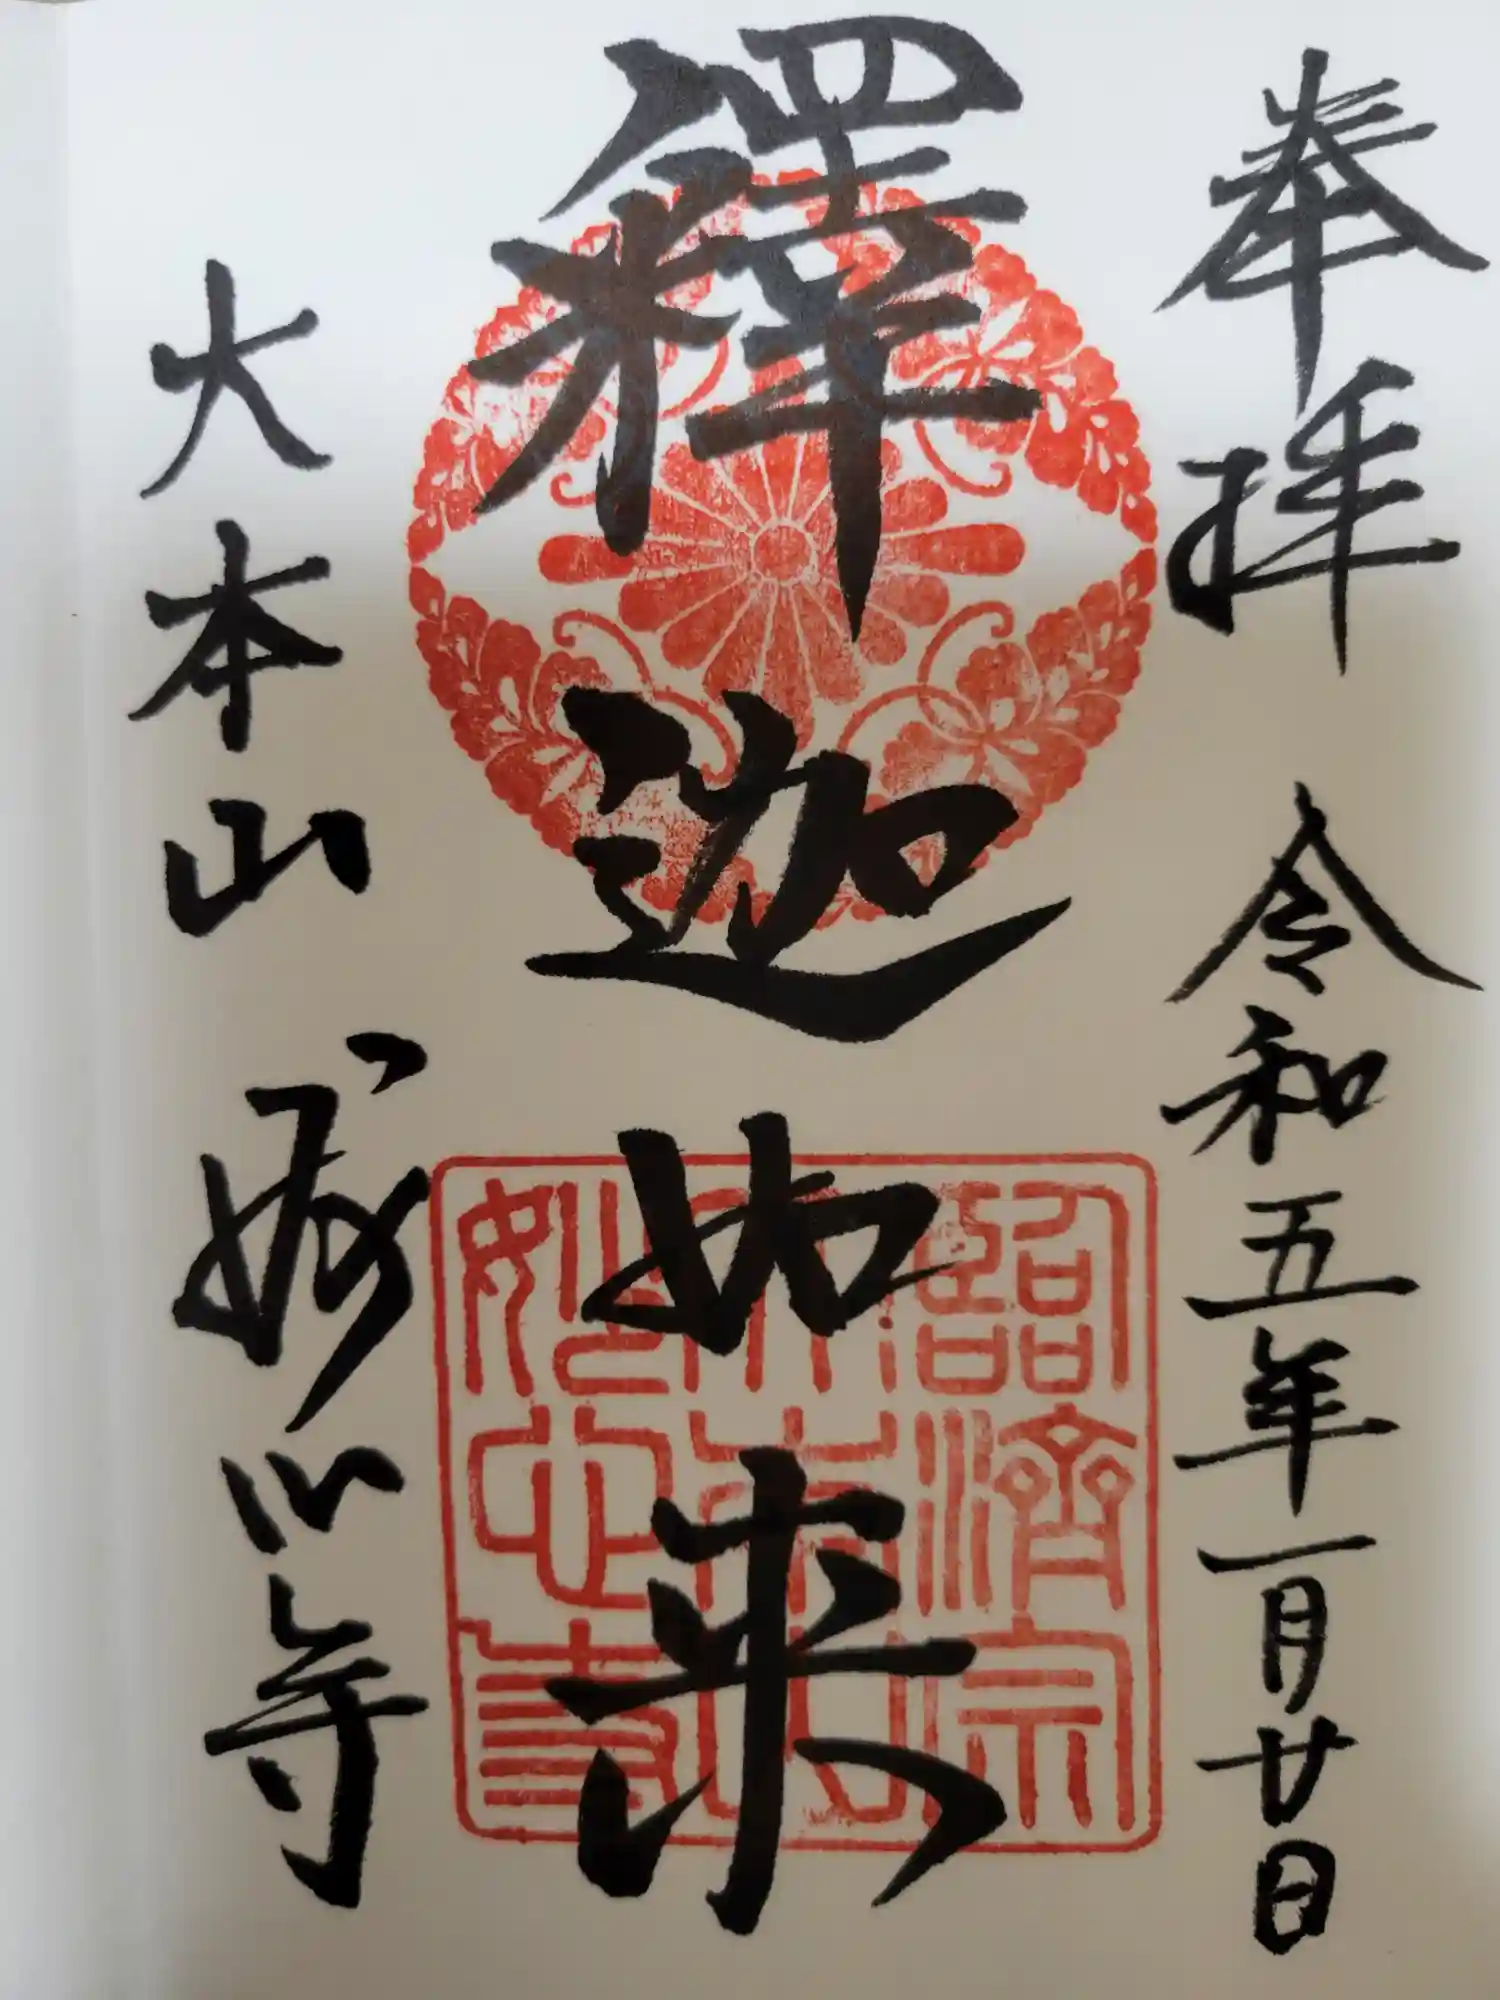 奉拝 令和五年一月廿日
釋迦如来
大本山 妙心寺
臨済宗
大本山
妙心寺